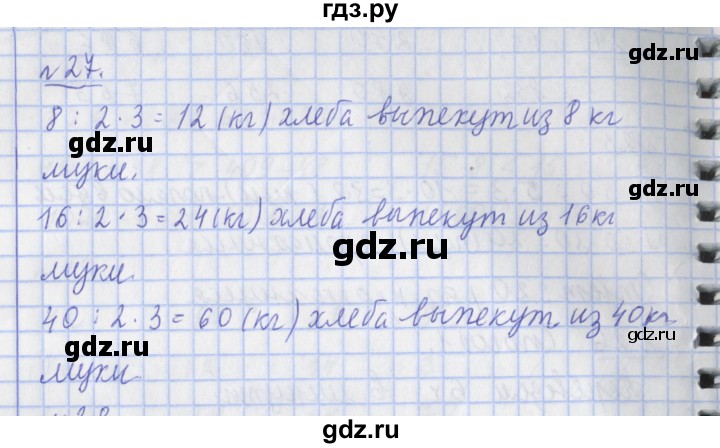 гдз.ру
gdz.ru
№27.
8 : 2 · 3 = 12 (кг) хлеба выпекут из 8 кг
gdz.ru
муки.
gdz.ru
16 : 2 · 3 = 24 (кг) хлеба выпекут из 16 кг
gdz.ru
муки.
40 : 2 · 3 = 60 (кг) хлеба выпекут из 40 кг
gdz.ru
gdz.ru
муки.
gdz.ru
gdz.ru